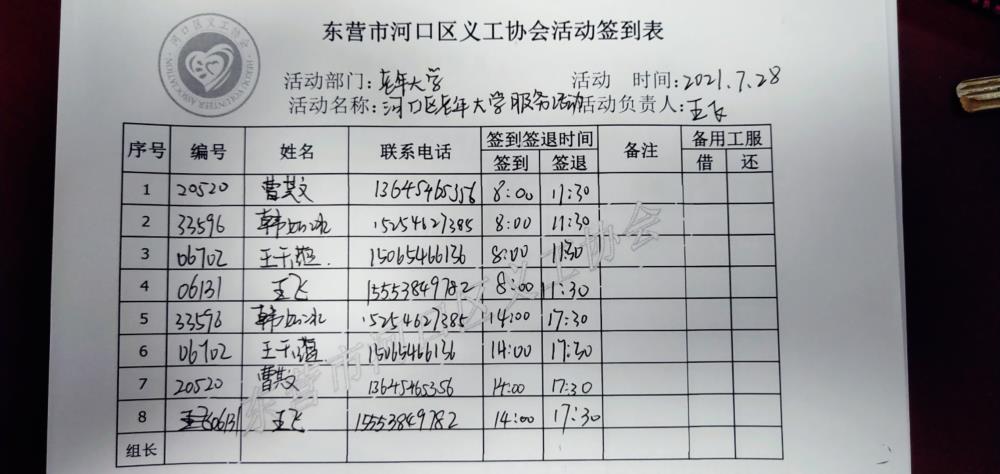 东营市河口区义工协会活动签到表
河口区义工协会
HEKOU VOLUNTEER ASSOCIATION
活动部门:老年大学 活动 时间:2021.7.28
活动名称:河口区老年大学服务活动 活动负责人:王飞
序号 编号 姓名 联系电话 签到签退时间 备注 备用工服
签到 签退 借 还
1 20520 曹英文 13645465356 8:00 11:30
2 33596 韩 15254627385 8:00 11:30
3 06702 王千蕴 15065466136 8:00 11:30
4 06131 王飞 15553849782 8:00 11:30
5 33596 韩 15254627385 14:00 17:30
6 06702 王千蕴 15065466136 14:00 17:30
7 20520 曹英文 13645465356 14:00 17:30
8 06131 王飞 15553849782 14:00 17:30
组长
东营市河口区义工协会